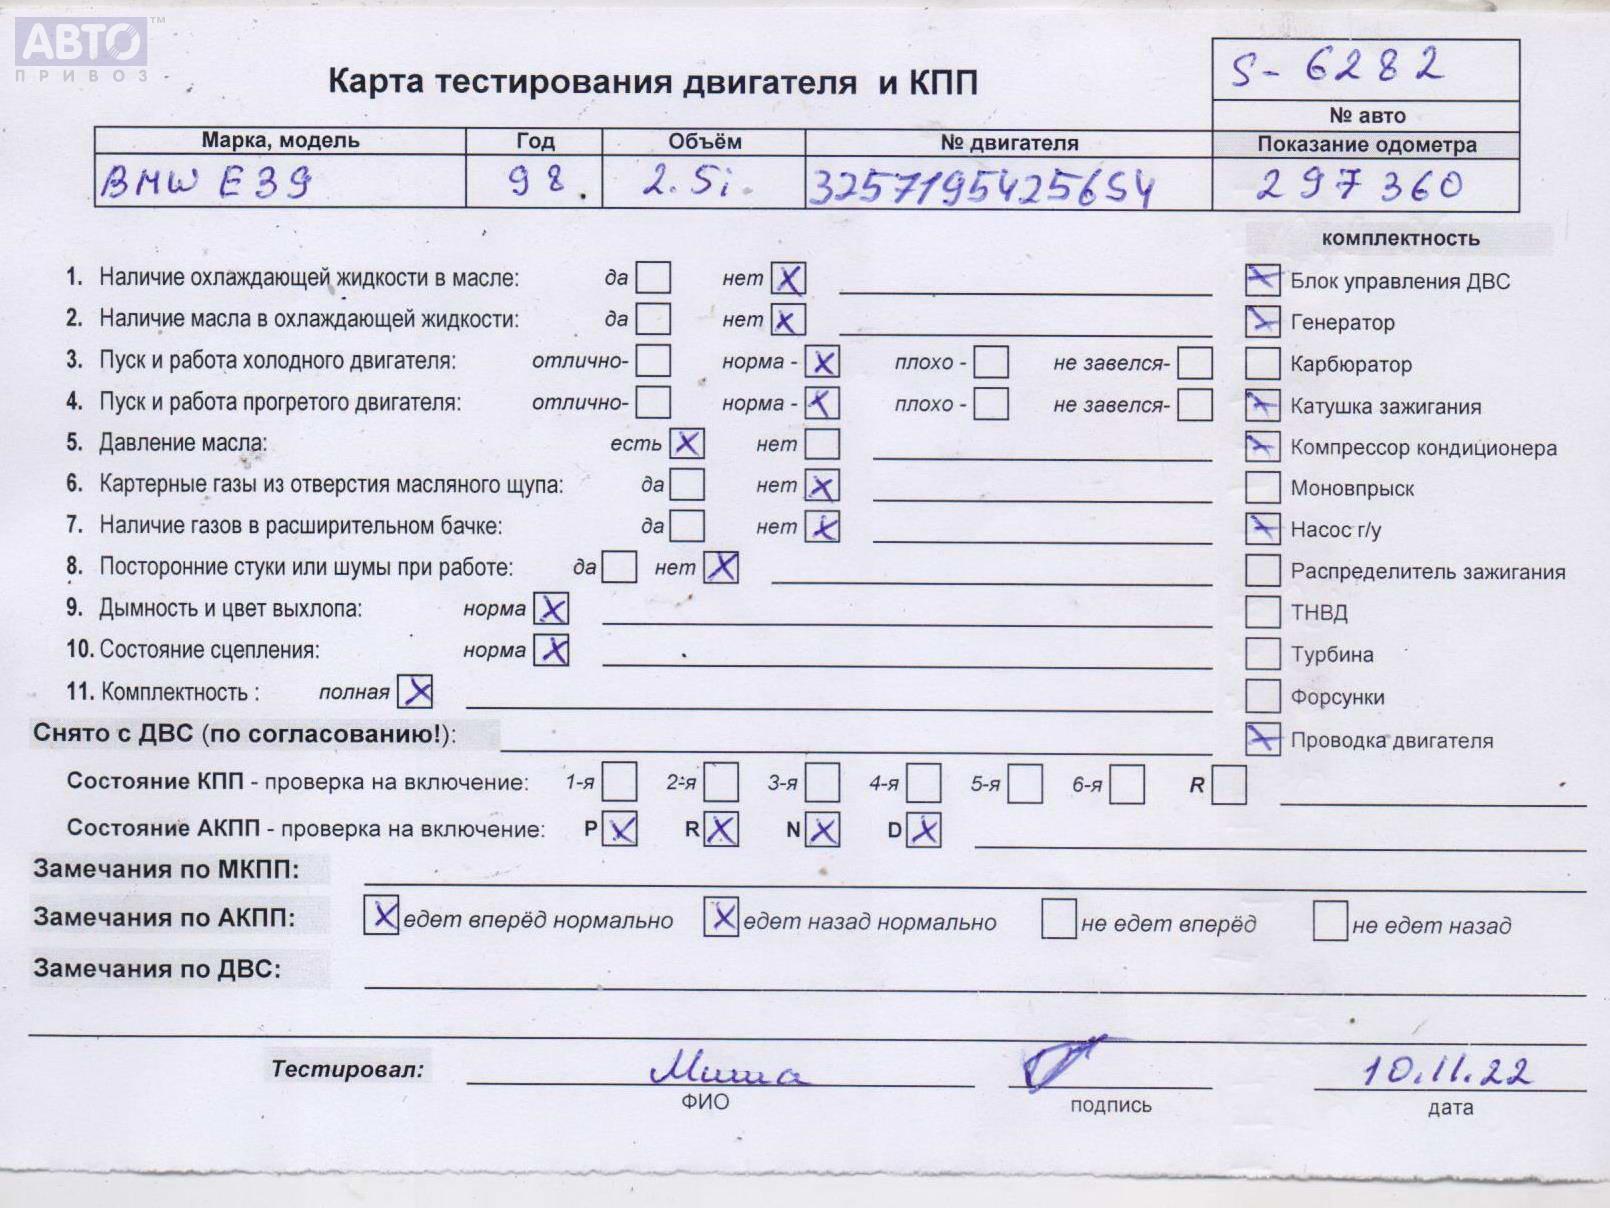 АВТО™
ПРИВОЗ
S-6282
Карта тестирования двигателя и КПП
№ авто
Марка, модель Год Объём № двигателя Показание одометра
BMW E39 98. 2.5i. 32571954256S4 297360
комплектность
1. Наличие охлаждающей жидкости в масле: да нет X
X Блок управления ДВС
2. Наличие масла в охлаждающей жидкости: да нет X
X Генератор
3. Пуск и работа холодного двигателя: отлично- норма - X плохо - не завелся-
Карбюратор
4. Пуск и работа прогретого двигателя: отлично- норма - X плохо - не завелся-
X Катушка зажигания
5. Давление масла: есть X нет
X Компрессор кондиционера
6. Картерные газы из отверстия масляного щупа: да нет X
Моновпрыск
7. Наличие газов в расширительном бачке: да нет X
X Насос г/у
8. Посторонние стуки или шумы при работе: да нет X
Распределитель зажигания
9. Дымность и цвет выхлопа: норма X
ТНВД
10. Состояние сцепления: норма X
Турбина
11. Комплектность : полная X
Форсунки
Снято с ДВС (по согласованию!):
X Проводка двигателя
Состояние КПП - проверка на включение: 1-я 2-я 3-я 4-я 5-я 6-я R
Состояние АКПП - проверка на включение: P X R X N X D X
Замечания по МКПП:
Замечания по АКПП: X едет вперёд нормально X едет назад нормально не едет вперёд не едет назад
Замечания по ДВС:
Тестировал: Миша 10.11.22
ФИО подпись дата